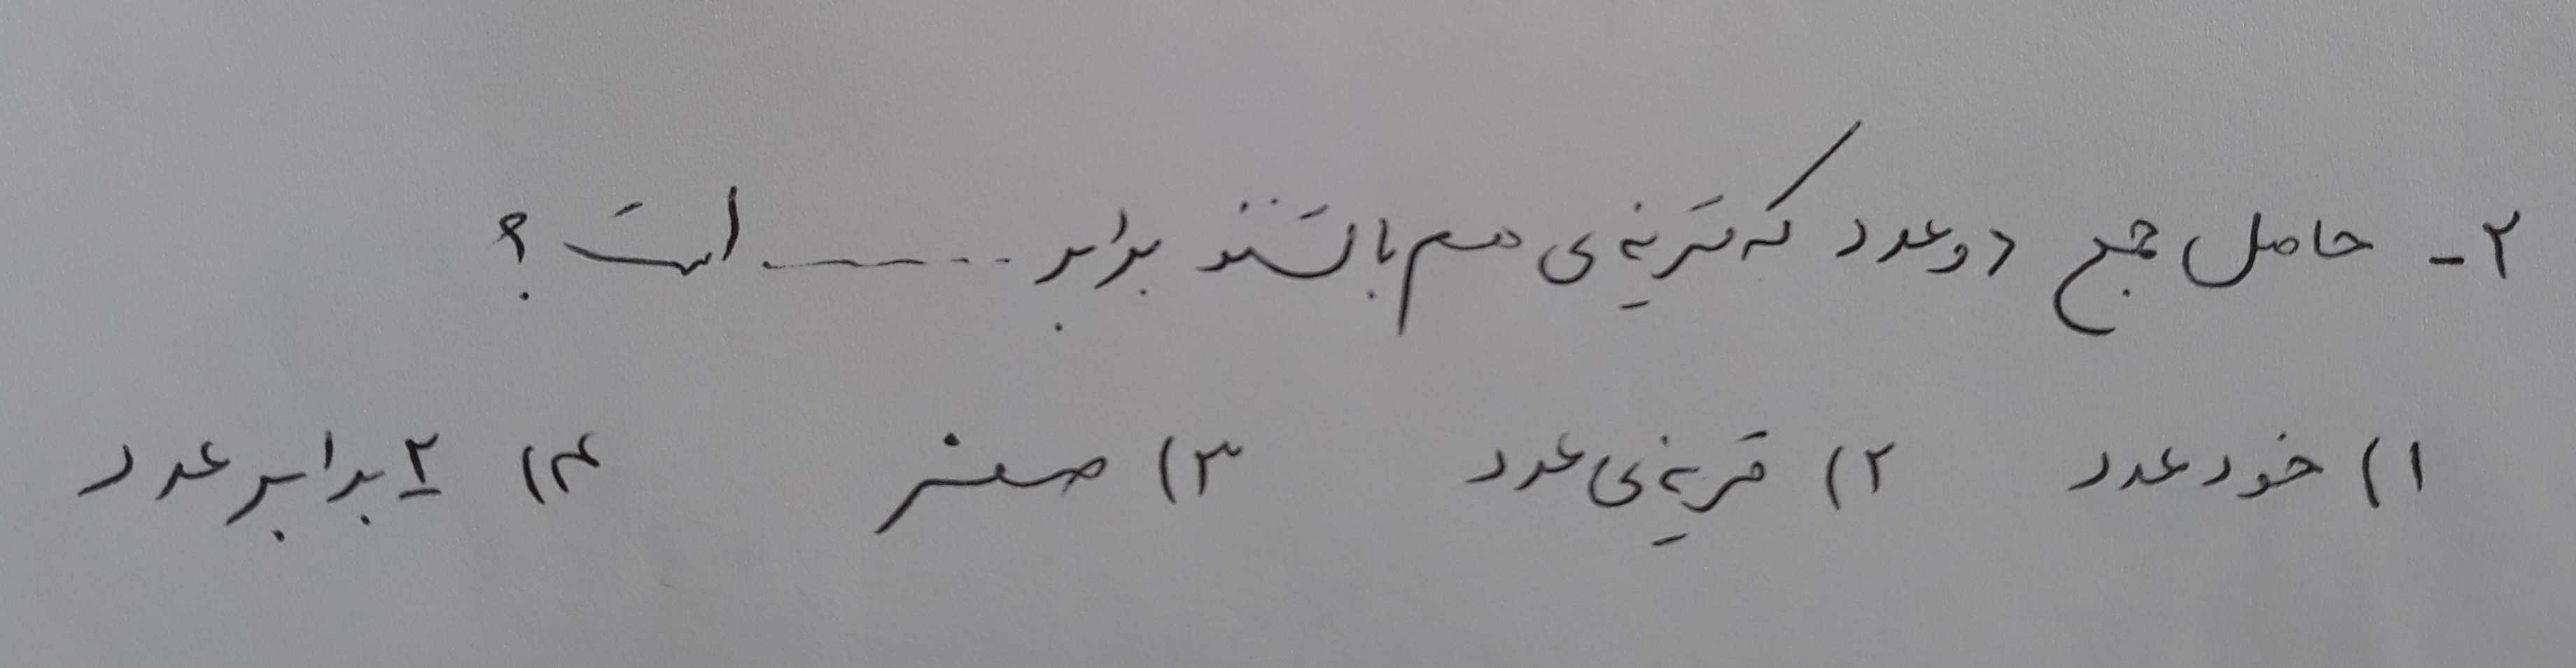 ۲- حاصل جمع دو عدد که قرینه ی هم باشند برابر ........... است ؟
۱) خود عدد ۲) قرینه ی عدد ۳) صفر ۴) ۲ برابر عدد